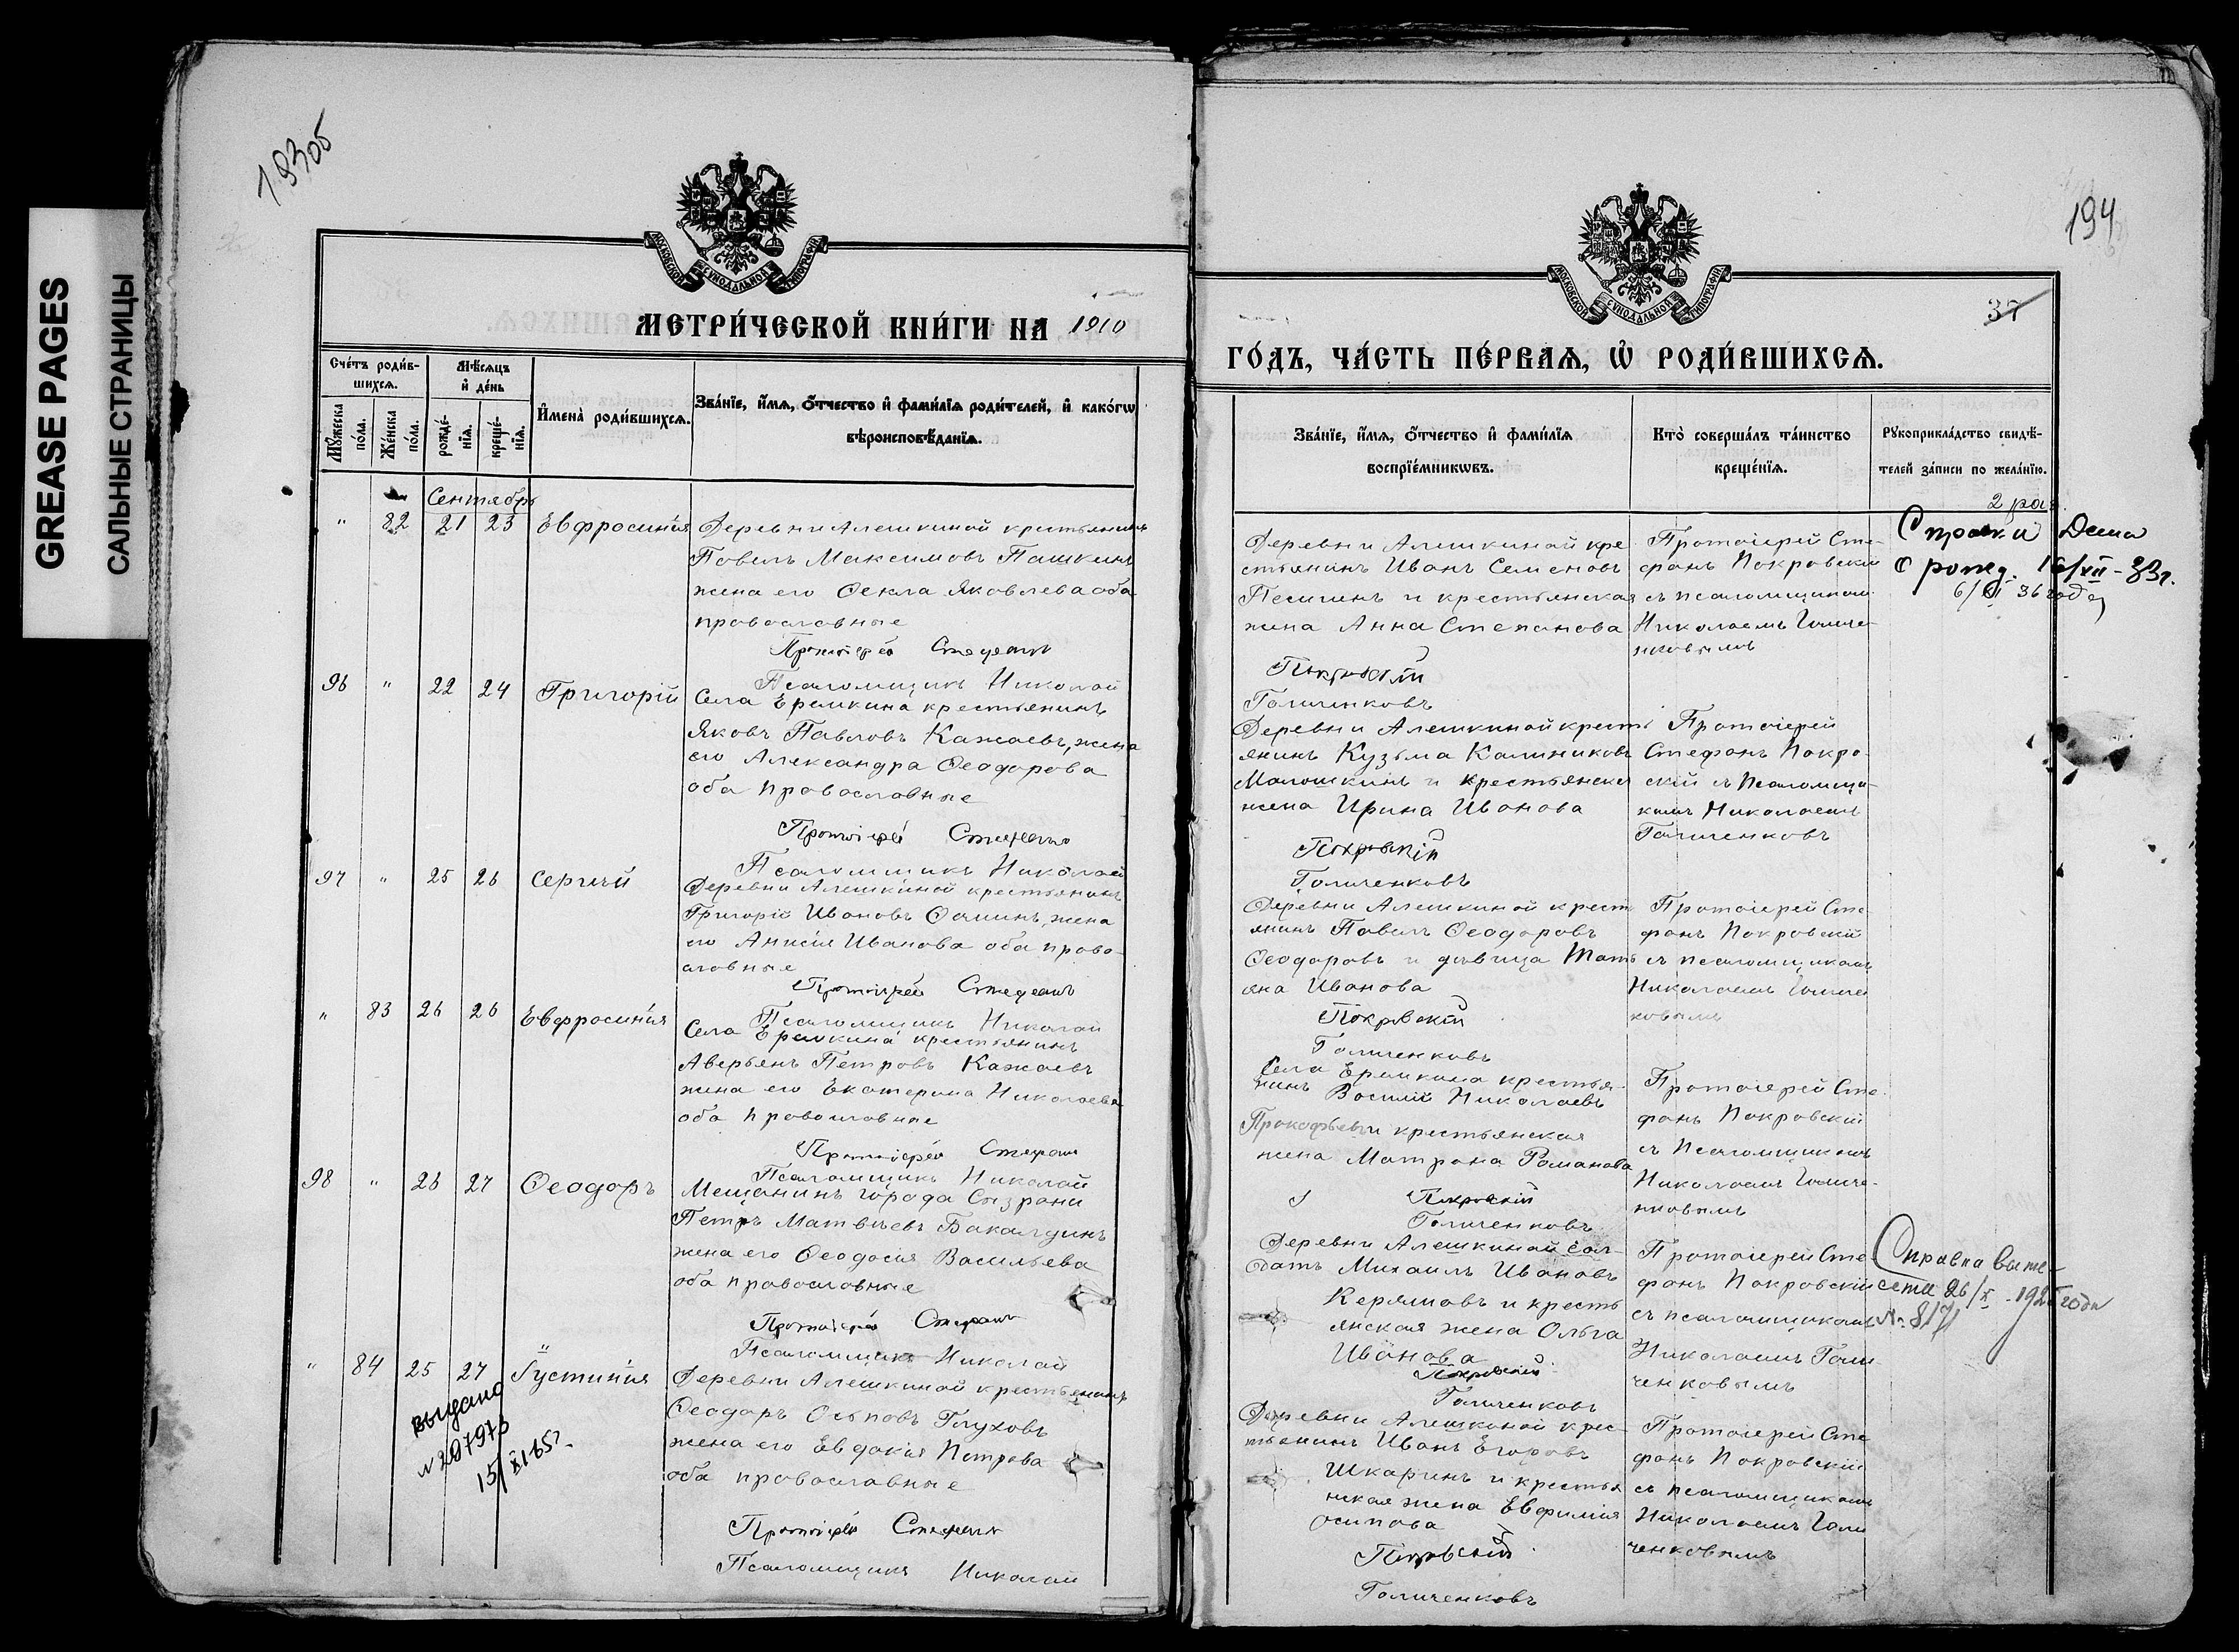 GREASE PAGES
САЛЬНЫЕ СТРАНИЦЫ
193об
МОСКОВСКОЙ СѴНОДАЛЬНОЙ ТИПОГРАФІИ
МЕТРИ́ЧЕСКОЙ КНИ́ГИ НА 1910
Сче́тъ роди́в-
шихсѧ.
Мꙋ́жеска
по́ла.
Же́нска
по́ла.
Мѣ́сѧцъ
и҆ де́нь
рожде́-
нїѧ.
креще́-
нїѧ.
И҆мена̀ роди́вшихсѧ.
Зва́нїе, и҆́мѧ, ѻ҆́тчество и҆ фами́лїѧ роди́телей, и҆ како́гѡ
вѣроисповѣ́данїѧ.
Сентябрь
" 82 21 23 Евфросинія Деревни Алешкиной крестьянинъ
Павелъ Максимовъ Пашкинъ
жена его Ѳекла Яковлева оба
православные
Протоіерей Стефанъ
Псаломщикъ Николай
96 " 22 24 Григорій Села Еремкина крестьянинъ
Яковъ Павловъ Кажаевъ, жена
его Александра Ѳеодорова
оба православные
Протоіерей Стефанъ
Псаломщикъ Николай
97 " 25 26 Сергій Деревни Алешкиной крестьянинъ
Григорій Ивановъ Ѳоминъ, жена
его Анисія Иванова оба право-
славные
Протоіерей Стефанъ
Псаломщикъ Николай
" 83 26 26 Евфросинія Села Еремкина крестьянинъ
Аверьянъ Петровъ Кажаевъ
жена его Екатерина Николаева
оба православные
Протоіерей Стефанъ
Псаломщикъ Николай
98 " 26 27 Ѳеодоръ Мещанинъ города Сызрани
Петръ Матвѣевъ Бакалдинъ
жена его Ѳеодосія Васильева
оба православные
Протоіерей Стефанъ
Псаломщикъ Николай
" 84 25 27 Іустинія Деревни Алешкиной крестьянинъ
Ѳеодоръ Осиповъ Глуховъ
жена его Евдокія Петрова
оба православные
выдано
Протоіерей Стефанъ
Псаломщикъ Николай
194
37
МОСКОВСКОЙ СѴНОДАЛЬНОЙ ТИПОГРАФІИ
ГО́ДЪ, ЧА́СТЬ ПЕ́РВАѦ, Ѡ҆ РОДИ́ВШИХСѦ.
Зва́нїе, и҆́мѧ, ѻ҆́тчество и҆ фами́лїѧ
воспрїе́мникѡвъ.
Кто̀ соверша́лъ та́инство
креще́нїѧ.
Рꙋкоприкла́дство свидѣ́-
телей за́писи по жела́нїю.
2 раз.
Деревни Алешкиной кре
стьянинъ Иванъ Семеновъ
и крестьянская
жена Анна Степанова
Покровскій
Голиченковъ
Протоіерей Сте-
фанъ Покровскій
съ псаломщикомъ
Николаемъ Голиче-
нковымъ
о рожд. 16/XII-33г.
6/XI 36 года
Деревни Алешкиной кресть
янинъ Кузьма Калиниковъ
Малошкинъ и крестьянская
жена Ирина Иванова
Покровскій
Голиченковъ
Протоіерей
Стефанъ Покро-
скій съ Псаломщи-
комъ Николаемъ
Голиченковъ
Деревни Алешкиной крест
янинъ Павелъ Ѳеодоровъ
Ѳеодоровъ и дѣвица Тать
яна Иванова
Покровскій
Голиченковъ
Протоіерей Сте-
фанъ Покровскій
съ псаломщикомъ
Николаемъ Голичен
ковымъ
Села Еремкина крестья-
нинъ Василій Николаевъ
Прокофьевъ и крестьянская
жена Матрона Романова
Покровскій
Голиченковъ
Протоіерей Сте-
фанъ Покровскій
съ Псаломщикомъ
Николаемъ Голиче-
нковымъ
Деревни Алешкиной сол-
датъ Михаилъ Ивановъ
Керямовъ и кресть
янская жена Ольга
Иванова
Покровскій
Голиченковъ
Протоіерей Сте-
фанъ Покровскій
съ псаломщикомъ
Николаемъ Голи-
ченковымъ
Справка
№ 817
Деревни Алешкиной крес-
тьянинъ Иванъ Егоровъ
Шкаринъ и крестья
нская жена Евфимія
Осипова
Покровскій
Голиченковъ
Протоіерей Сте
фанъ Покровскій
съ псаломщикомъ
Николаемъ Голи
ченковымъ